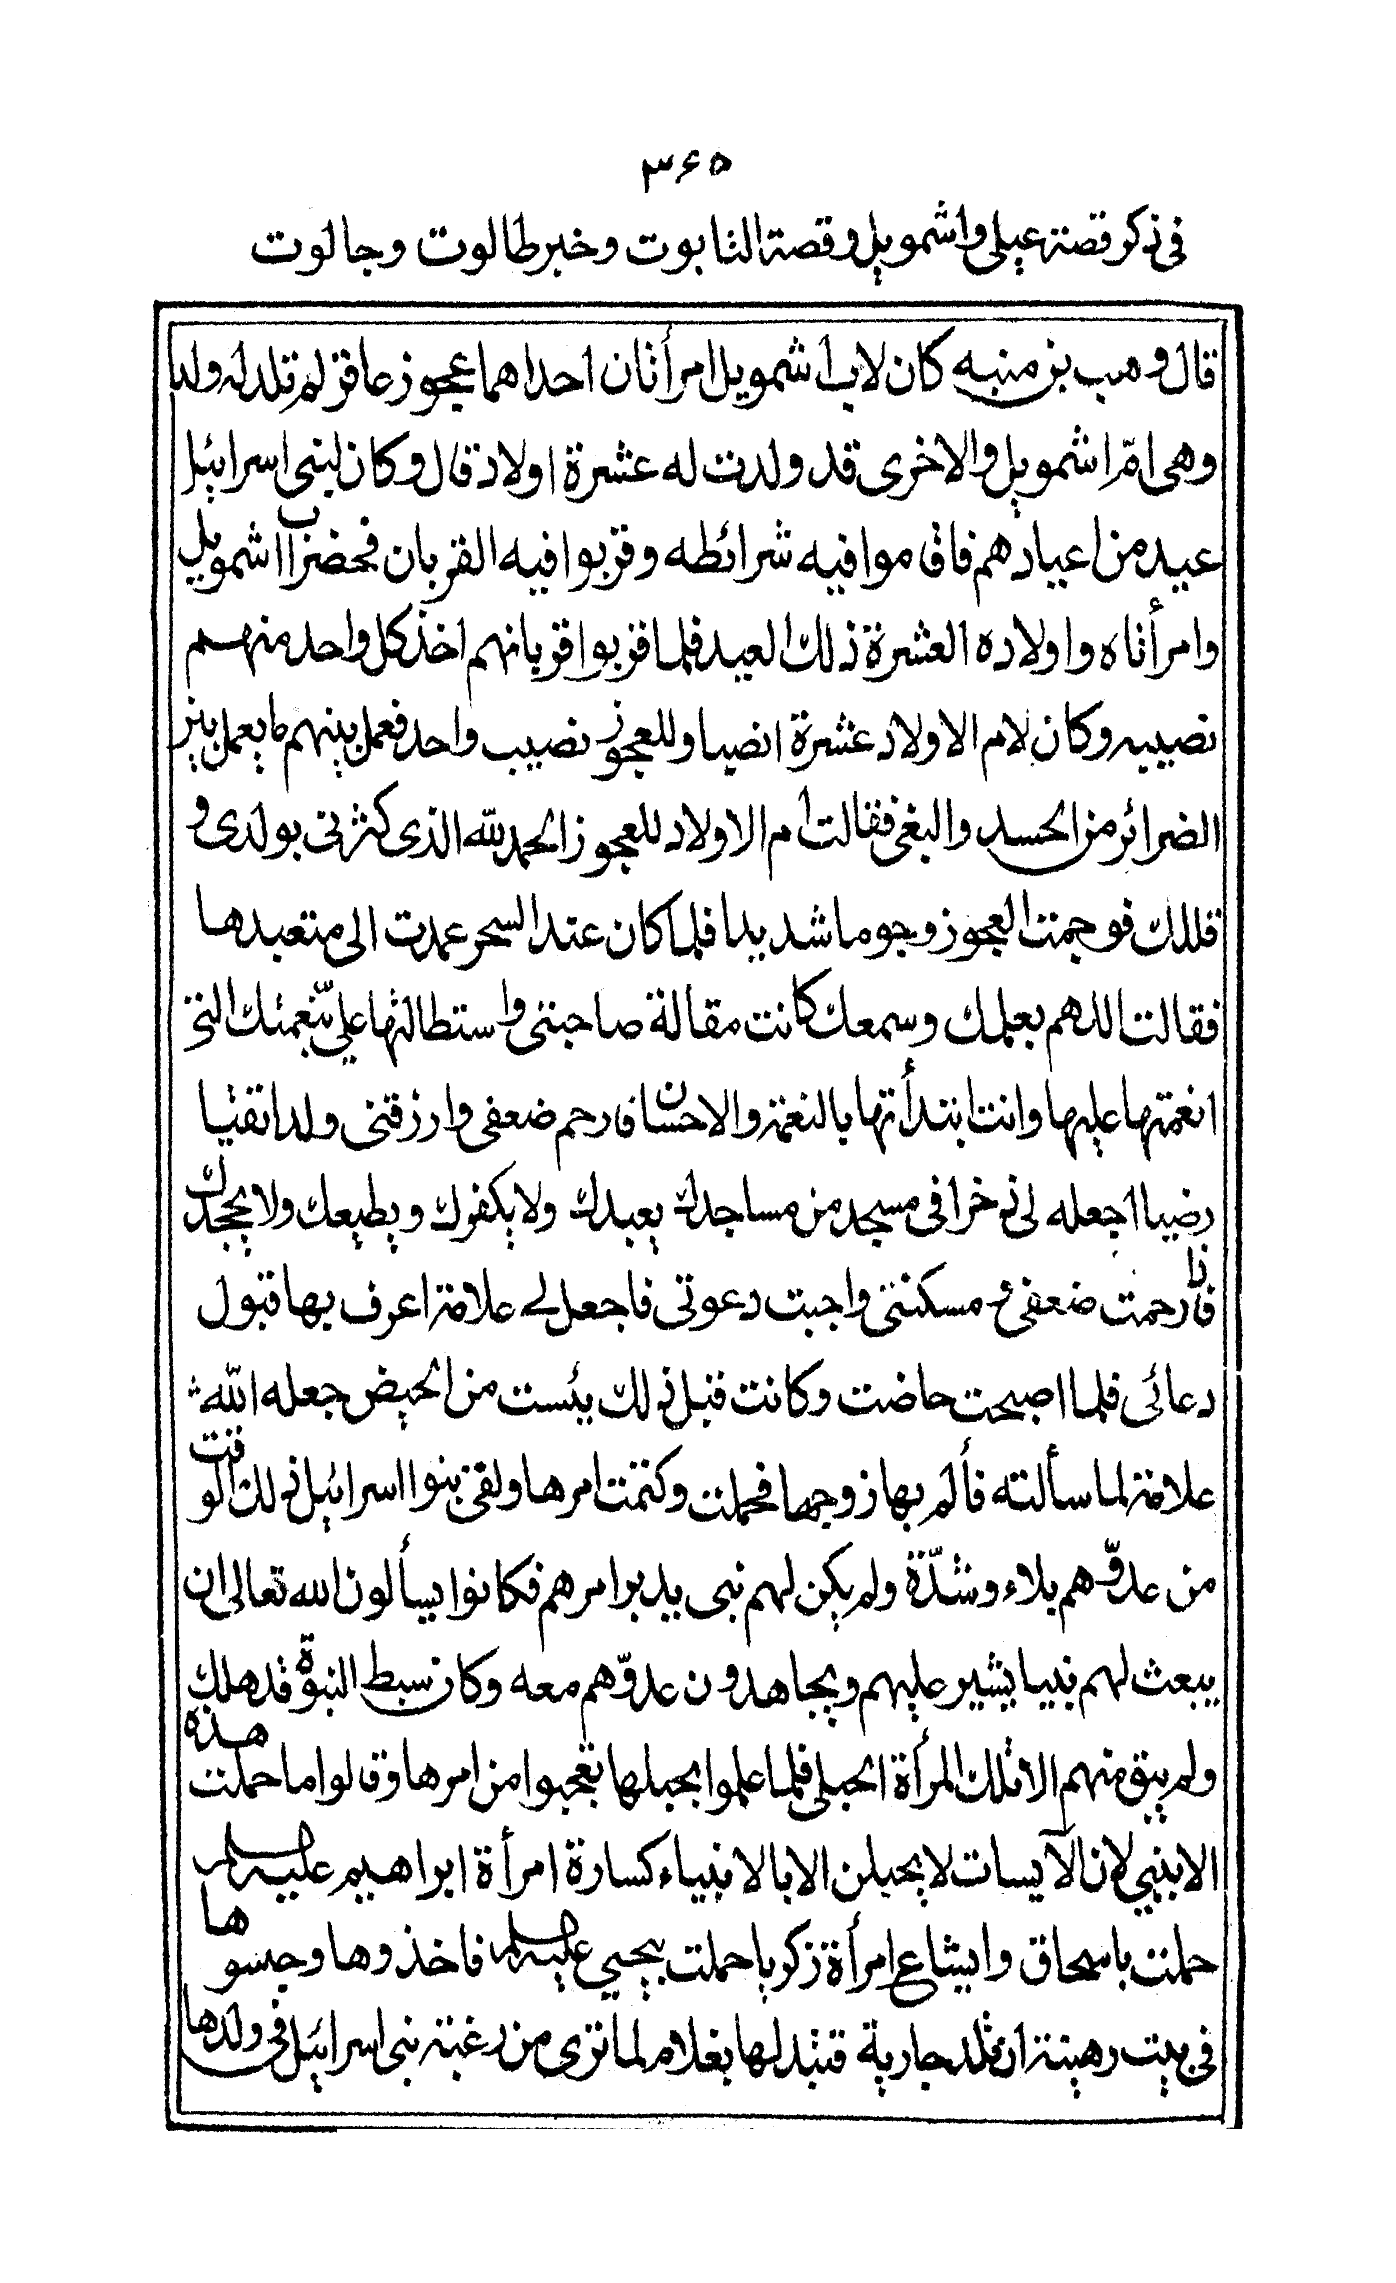 ٣۶۵
فى ذكر قصة عيلى واشمويل وقصة التابوت وخبر طالوت وجالوت
قال وهب بن منبه كان لاب اشمويل امرأتان احداهما عجوز عاقر لم تلد له ولدا
وهى امّ اشمويل والاخرى قد ولدت له عشرة اولاد قال وكان لبنى اسرائيل
عيد من اعيادهم فاقاموا فيه شرائطه وقربوا فيه القربان فحضر اب اشمويل
وامرأتاه واولاده العشرة ذلك العيد فلما قربوا قربانهم اخذ كل واحد منهم
نصيبه وكان لام الاولاد عشرة انصبا وللعجوز نصيب واحد فعمل بينهم ما يعمل بين
الضرائر من الحسد والبغى فقالت ام الاولاد للعجوز الحمد لله الذى كثرنى بولدى و
قللك فوجمت العجوز وجوما شديدا فلما كان عند السحر عمدت الى متعبدها
فقالت اللهم بعلمك وسمعك كانت مقالة صاحبتى واستطالتها علي بنعمتك التى
انعمتها عليها وانت ابتدأتها بالنعمة والاحسان فارحم ضعفى وارزقنى ولدا تقيا
رضيا اجعله لى ذخرا فى مسجد من مساجدك يعبدك ولا يكفرك ويطيعك ولا يجحدك
فاذا رحمت ضعفى و مسكنتى واجبت دعوتى فاجعل لى علامة اعرف بها قبول
دعائى فلما اصبحت حاضت وكانت قبل ذلك يئست من الحيض جعله الله
علامة لما سألته فألم بها زوجها فحملت وكتمت امرها ولقى بنوا اسرائيل ذلك الوقت
من عدوّهم بلاء وشدّة ولم يكن لهم نبى يدبر امرهم فكانوا يسألون الله تعالى ان
يبعث لهم نبيا يشير عليهم ويجاهدون عدوّهم معه وكان سبط النبوة قد هلك
ولم يبق منهم الا تلك المرأة الحبلى فلما علموا بحبلها تعجبوا من امرها وقالوا ما حملت هذه
الا بنبي لان الآيسات لا يحبلن الا بالانبياء كسارة امرأة ابراهيم عليه السلام
حملت باسحاق وايشاع امرأة زكريا حملت بيحيي عليه السلام فاخذوها وحبسوها
فى بيت رهينة ان تلد جارية فتبدلها بغلام لما ترى من رغبة بنى اسرائيل فى ولدها